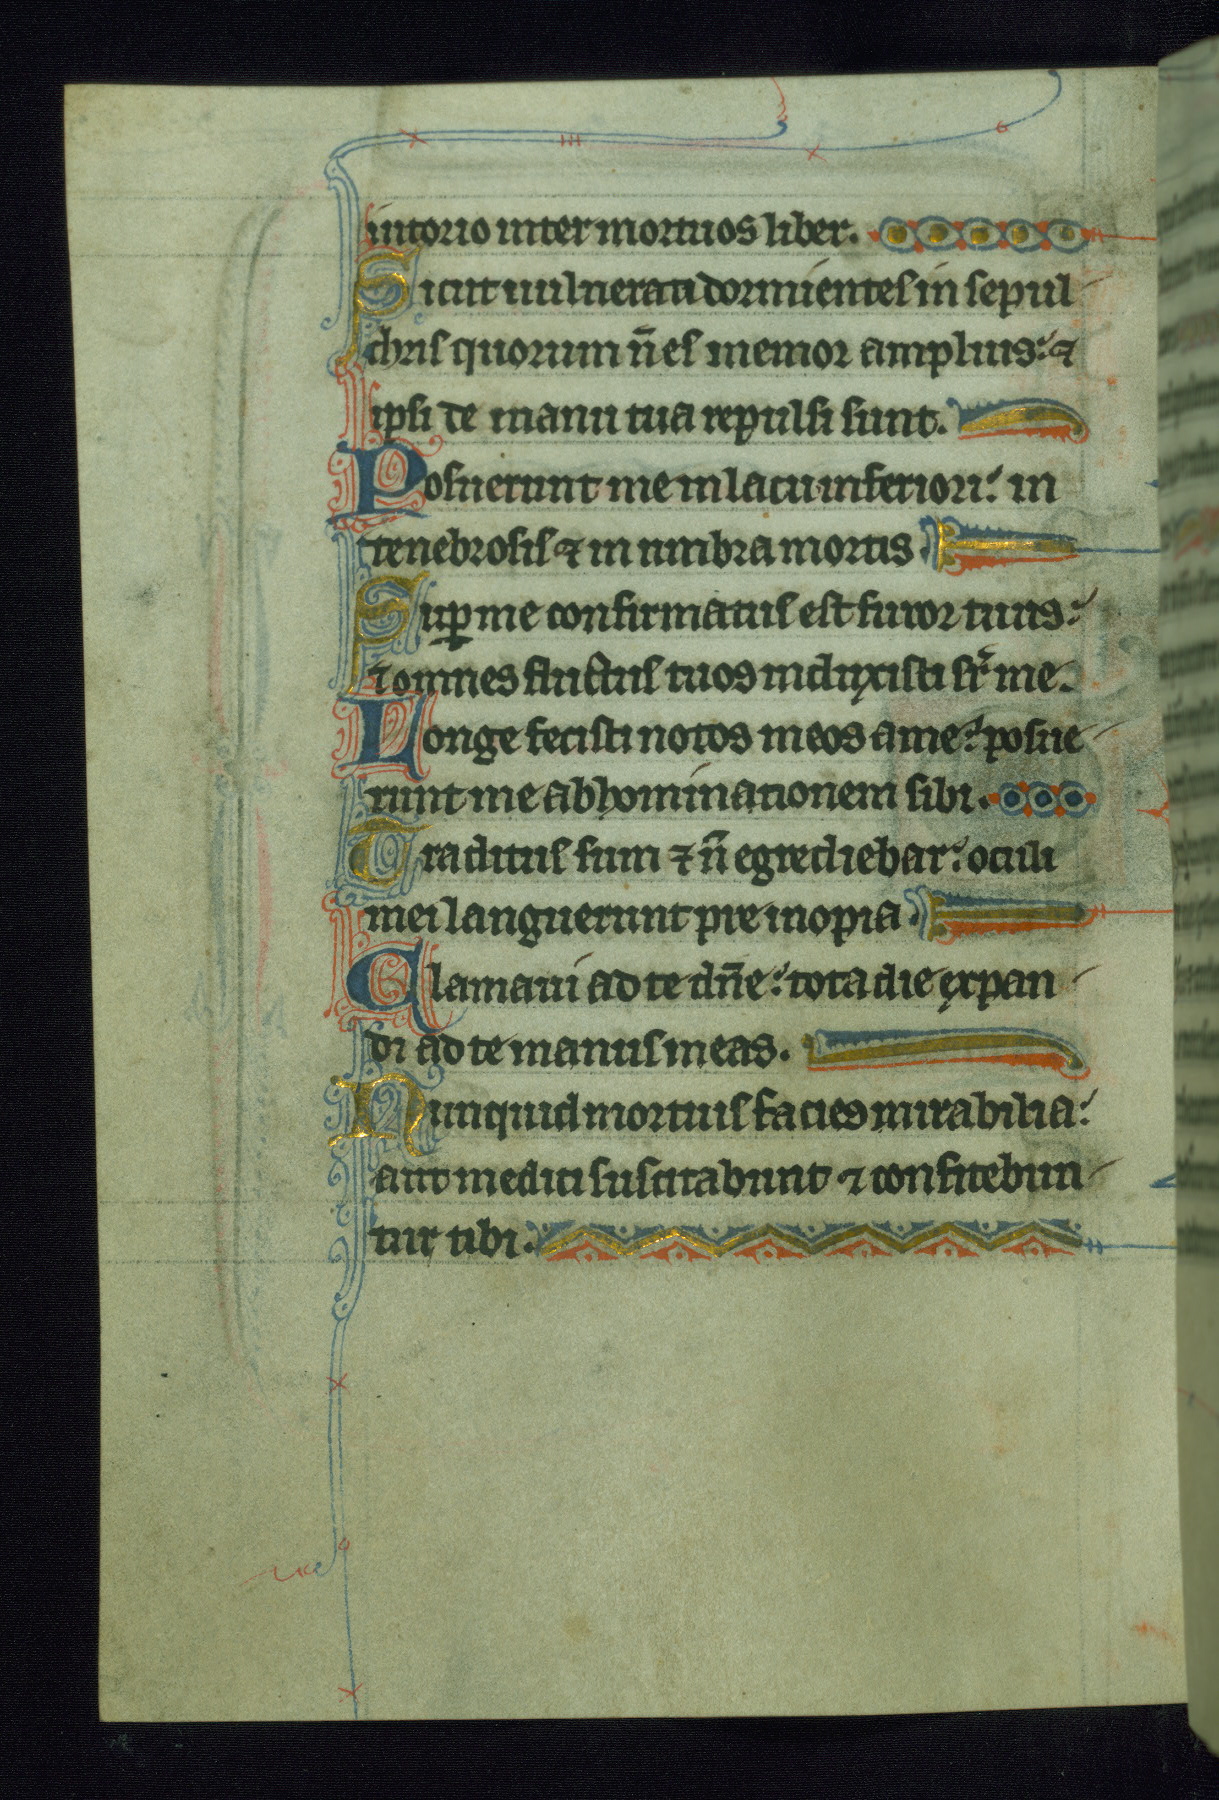 iutorio inter mortuos liber.
Sicut uulnerati dormientes in sepul
chris quorum n̄ es memor amplius: ⁊
ipsi de manu tua repulsi sunt.
Posuerunt me in lacu inferiori: in
tenebrosis ⁊ in umbra mortis
Suꝑ me confirmatus est furor tuus:
⁊ omnes fluctus tuos induxisti sr̄ me.
Longe fecisti notos meos a me: posue
runt me abhominationem sibi.
Traditus sum ⁊ n̄ egrediebar: oculi
mei languerunt pre inopia.
Clamaui ad te dn̄e: tota die expan
di ad te manus meas.
Nunquid mortuis facies mirabilia:
aut medici suscitabunt ⁊ confitebun
tur tibi.